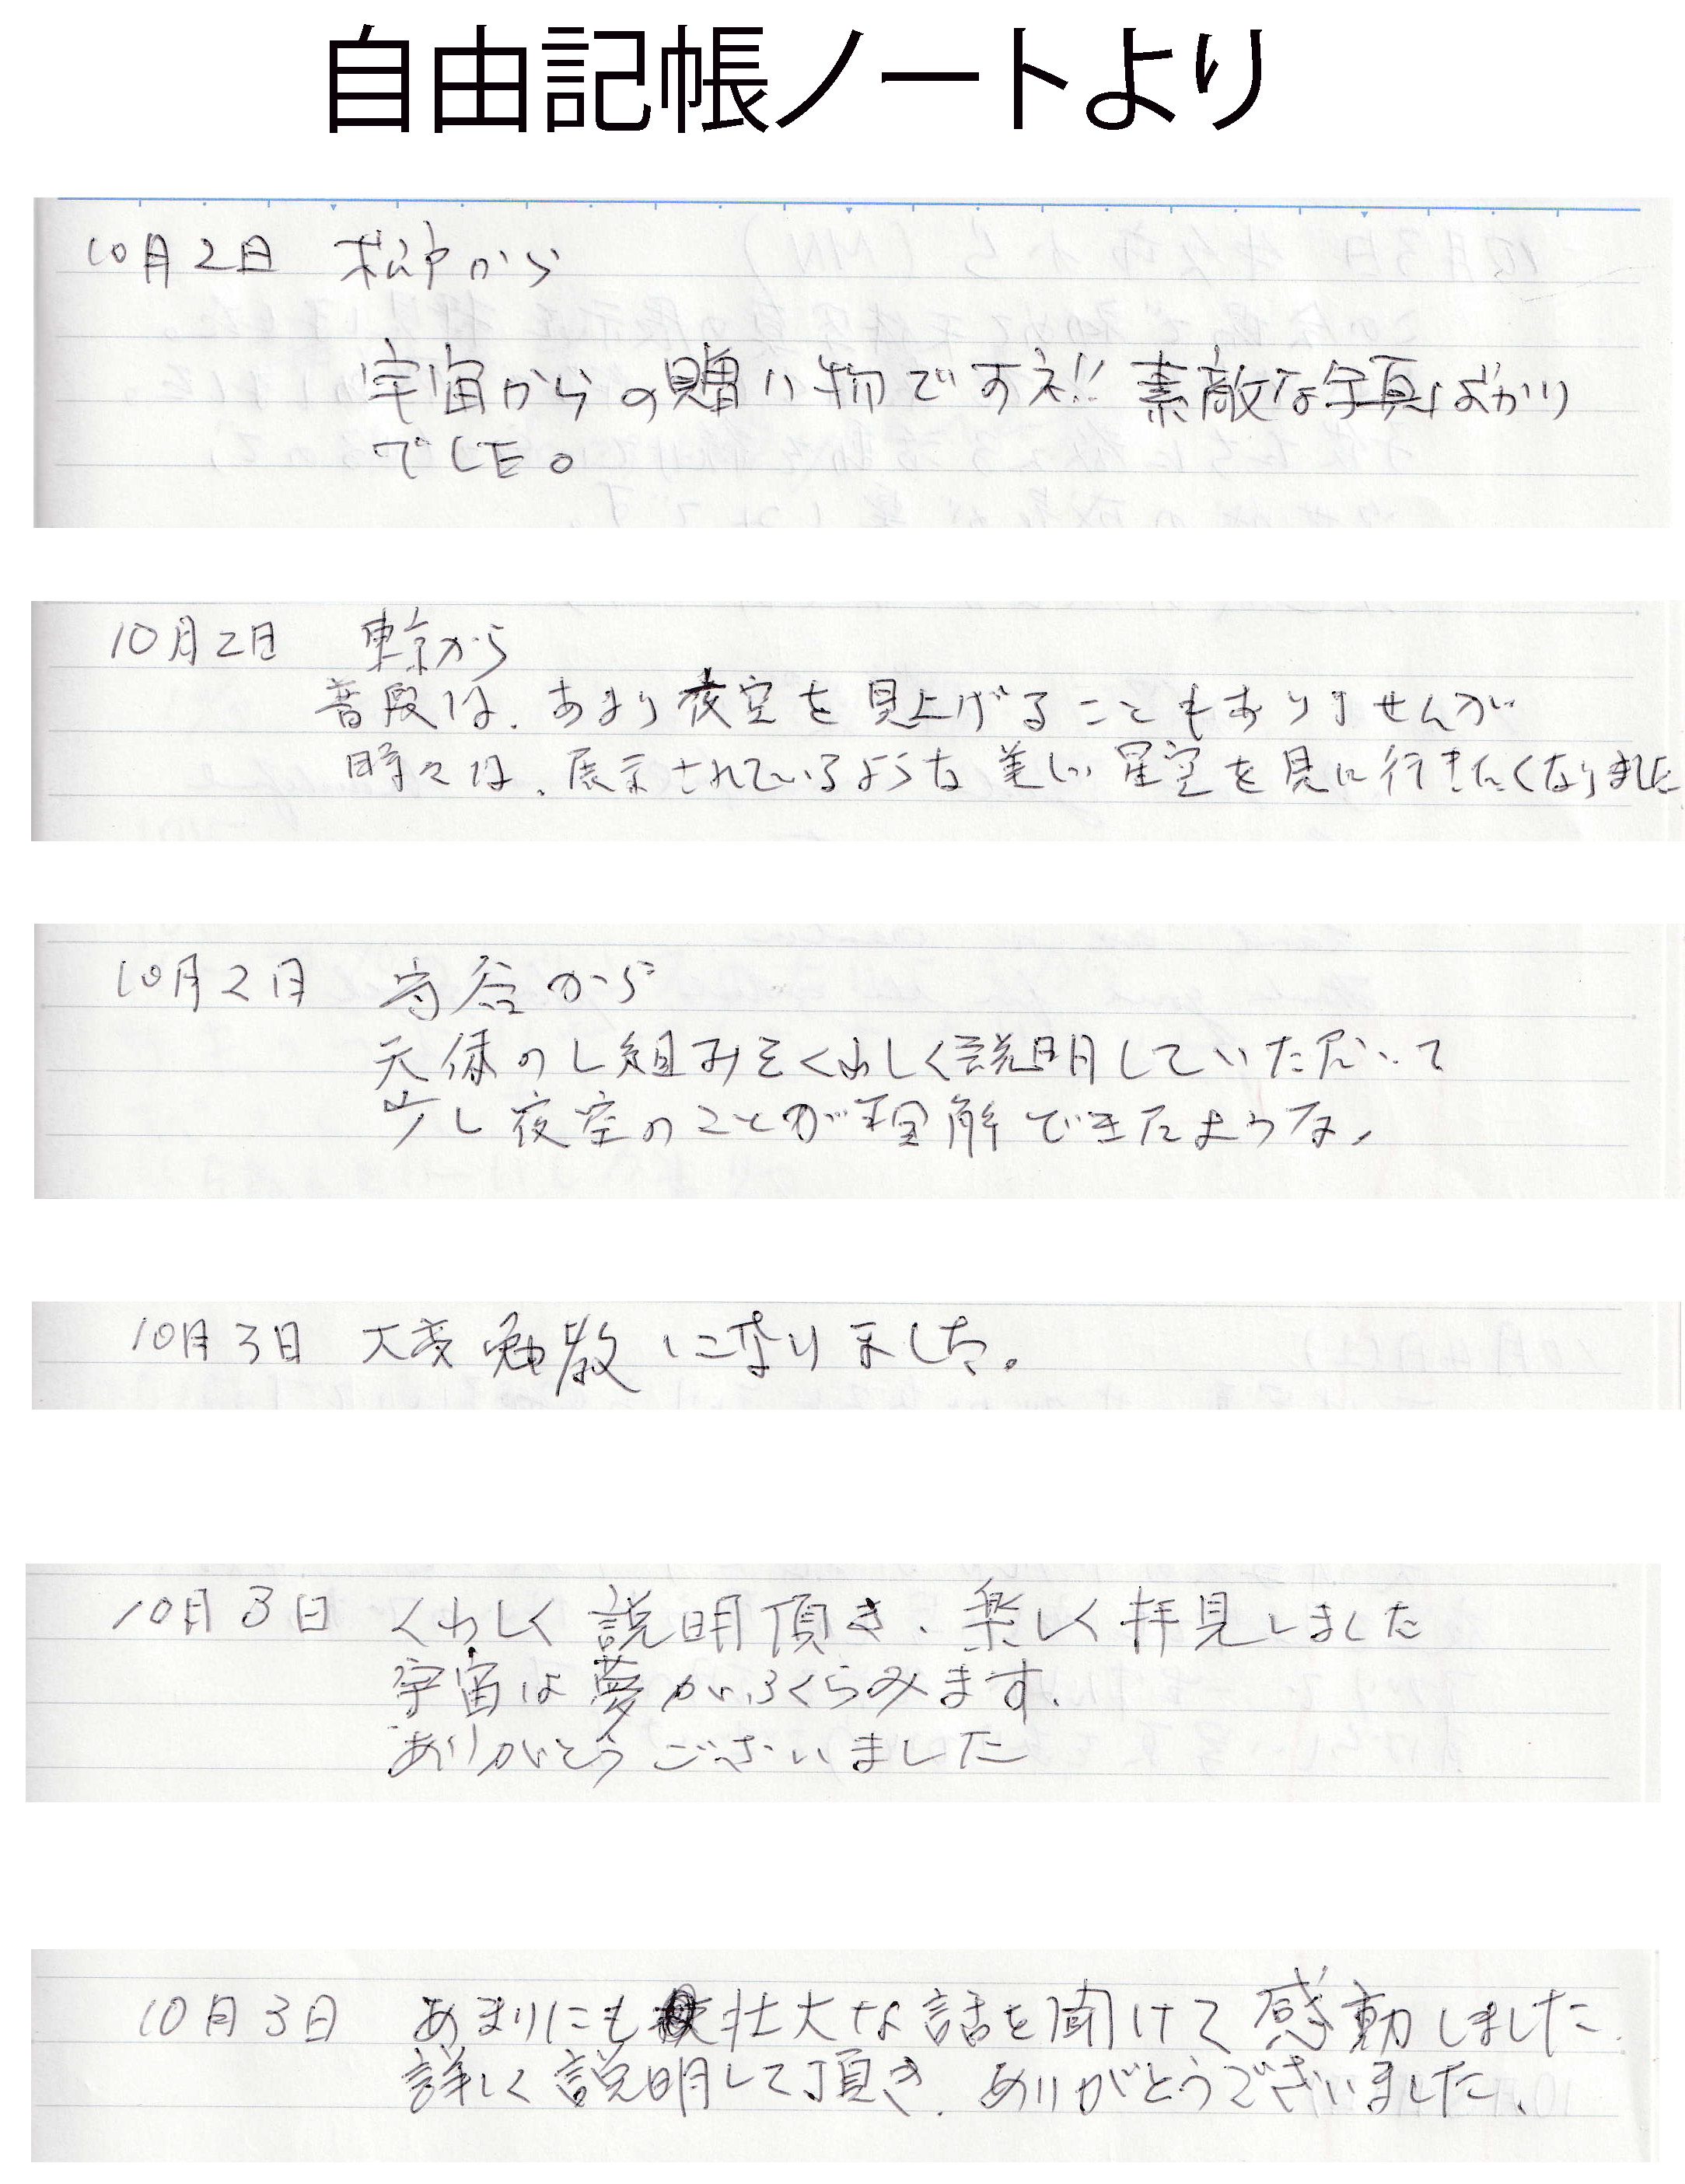 自由記帳ノートより
10月2日 松戸から
宇宙からの贈り物ですネ!! 素敵な写真ばかり
でした。
10月2日 東京から
普段は、あまり夜空を見上げることもありませんが
時々は、展示されているような美しい星空を見に行きたくなりました
10月2日 守谷から
天体のし組みをくわしく説明していただいて
少し夜空のことが理解できたような、
10月3日 大変勉教になりました。
10月3日 くわしく説明頂き、楽しく拝見しました
宇宙は夢がふくらみます.
ありがとうございました
10月3日 あまりにも壮大な話を聞けて感動しました.
詳しく説明して頂き、ありがとうございました、